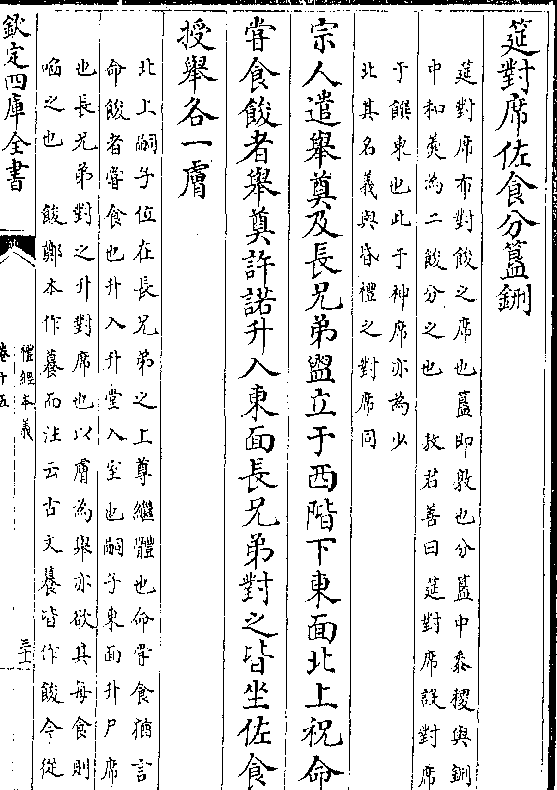 筵對席佐食分簋鉶
筵對席布對餕之席也簋即敦也分簋中黍稷與鉶
中和羮為二餕分之也　敖君善曰筵對席設對席
于饌東也此于神席亦為少
北其名義與昏禮之對席同
宗人遣舉奠及長兄弟盥立于西階下東面北上祝命
嘗食餕者舉奠許諾升入東面長兄弟對之皆坐佐食
授舉各一膚
北上嗣子位在長兄弟之上尊繼體也命嘗食猶言
命餕者嘗食也升入升堂入室也嗣子東面升尸席
也長兄弟對之升對席也以膚為舉亦欲其每食則
啗之也　餕鄭本作籑而注云古文籑皆作餕今從
欽定四庫全書
禮經本義
卷十五
三十一